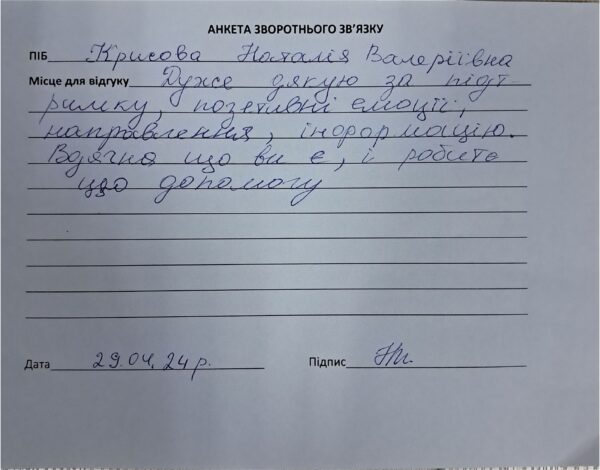 АНКЕТА ЗВОРОТНЬОГО ЗВ'ЯЗКУ
ПІБ Крисова Наталія Валеріївна
Місце для відгуку Дуже дякую за підт
римку, позетивні емоції,
направлення, інформацію.
Вдячна що ви є, і робите
цю допомогу
Дата 29.04.24 р. Підпис